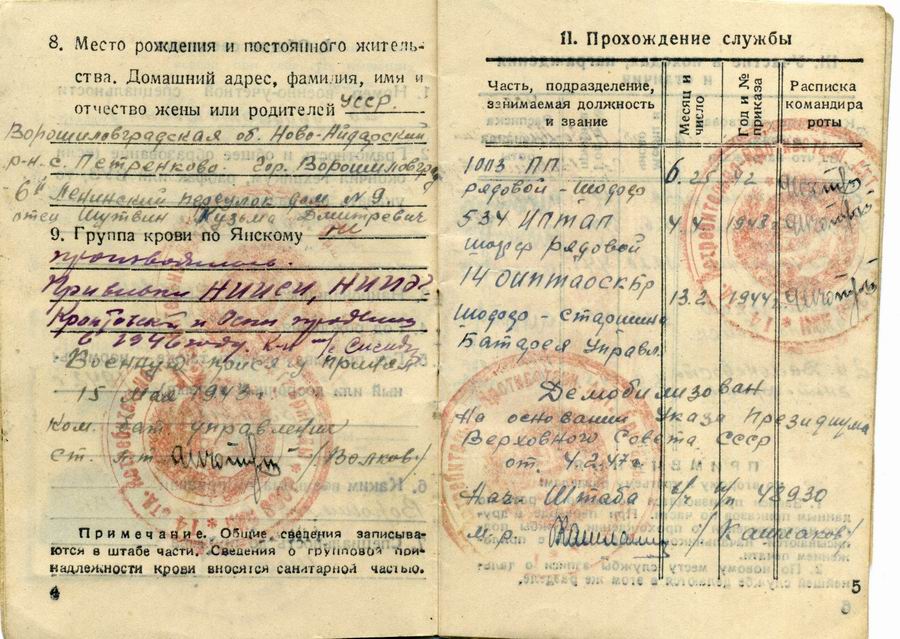 8. Место рождения и постоянного житель-
ства. Домашний адрес, фамилия, имя и
отчество жены или родителей УССР.
Ворошиловградская об. Ново-Айдарский
р-н. с. Петренково. гор. Ворошиловград
6й Ленинский переулок дом №9
отец Шутвин Кузьма Дмитревич
9. Группа крови по Янскому
производилась.
Прививки НИИСИ,
в 1946 году.
Военную присягу принял
15 мая 1943 г.
Ком. бат управления
ст. л-т /Волков/
Примечание. Общие сведения записыва-
ются в штабе части. Сведения о групповой при-
надлежности крови вносятся санитарной частью.
4
11. Прохождение службы
Часть, подразделение,
занимаемая должность
и звание
Месяц и
число
Год и №
приказа
Расписка
командира
роты
1003 ПП 6.
рядовой - шофер 25 42
534 ИПТАП 4.4 1943г.
шофер рядовой
14 ОИПТАОСКБр 13.2 1944г.
Старшина
Батарея Управл.
Демобилизован
На основании Указа Президиума
Верховного Совета СССР
от 4.2.47г.
Нач. Штаба в/ч п/п 42930
М-р. /Кашмаков/
5